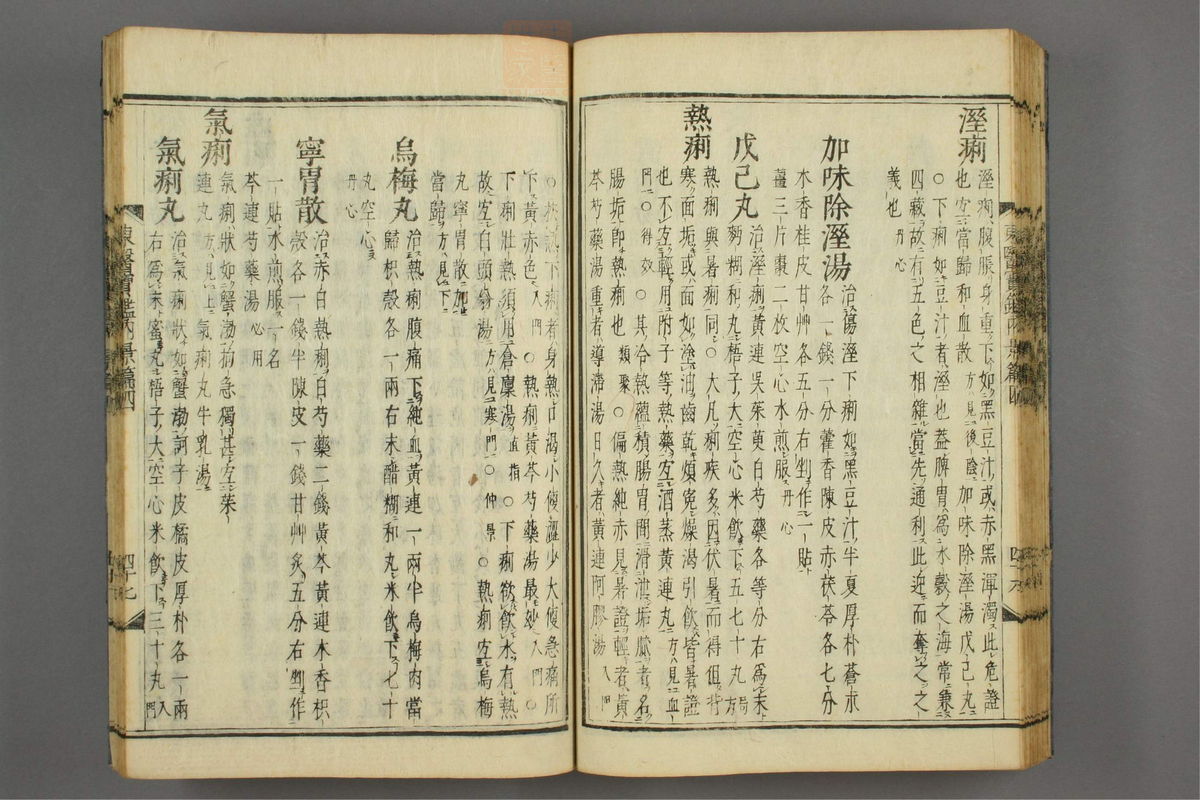 溼痢
溼痢腹脹身重下如黑豆汁或赤黑渾濁此危證
也宜當歸和血散方見後陰加味除溼湯戊己丸
○下痢如豆汁者溼也蓋脾胃爲水穀之海常兼
四藏故有五色之相雜當先通利此迎而奪之之
義也丹心
加味除溼湯治傷溼下痢如黑豆汁半夏厚朴蒼朮
藿香陳皮赤茯苓各七分
木香桂皮甘艸各五分右剉作一貼
薑三片棗二枚空心水煎服丹心
戊己丸治溼痢黃連吳茱萸白芍藥各等分右爲末
麪糊和丸梧子大空心米飮下五七十丸局方
熱痢
熱痢與暑痢同○大凡痢疾多因伏暑而得但背
寒面垢或面如塗油齒乾煩寃燥渴引飮皆暑證
也不宜輕用附子等熱藥宜酒蒸黃連丸方見血
門○得效○其冷熱蘊積腸胃間滑泄垢膩者名
腸垢卽熱痢也類聚○偏熱純赤見暑證輕者黃
芩芍藥湯重者導滯湯日久者黃連阿膠湯入門
下黃赤色入門○熱痢黃芩芍藥湯最妙入門○
下痢壯熱須用倉廩湯直指○下痢欲飮水有熱
故宜白頭翁湯方見寒門○仲景○熱痢宜烏梅
丸寧胃散加
當歸方見下
烏梅丸治熱痢腹痛下純血黃連一兩半烏梅肉當
歸枳殼各一兩右末醋糊和丸米飮下七十
丸空心
丹心
寧胃散治赤白熱痢白芍藥二錢黃芩黃連木香枳
殼各一錢半陳皮一錢甘艸炙五分右剉作
一貼水煎服一名
芩連芍藥湯心用
氣痢
氣痢狀如蟹渤拘急獨甚宜茱
連丸方見上氣痢丸牛乳湯
氣痢丸治氣痢狀如蟹渤訶子皮橘皮厚朴各一兩
右爲末蜜丸梧子大空心米飮下三十丸入門
東醫寶鑑內景篇四
四十七